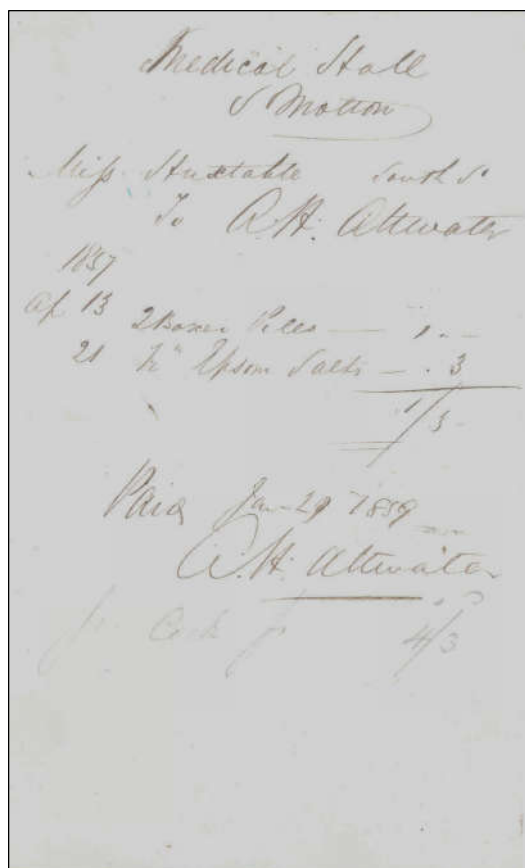 Medical Hall
S Molton
Miss Huxtable South St
To A.H. Attwater
1857
Ap 13 2 Boxes Pills — 1 . —
21 Epsom Salts — . 3
1/3
Paid Jan 29 1859
A.H. Attwater
4/3